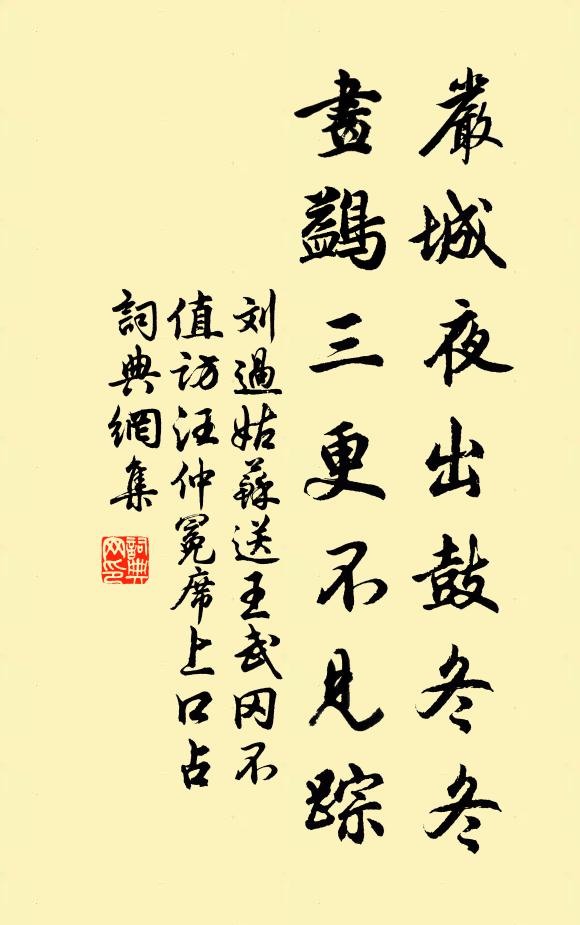 嚴城夜出鼓冬冬
畫鷁三更不見踪
刘過姑蘇送王武冈不
值訪汪仲冕席上口占
詞典網集
詞典网印